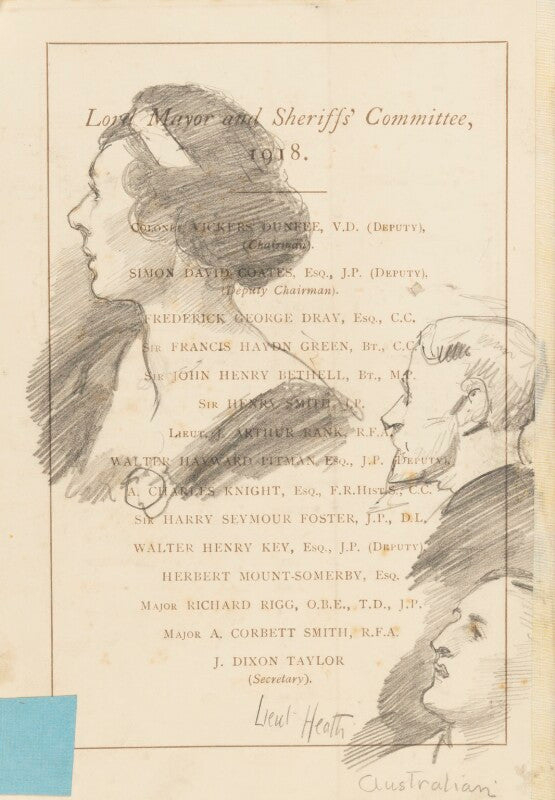 Lord Mayor and Sheriffs' Committee,
1918.
Colonel VICKERS DUNFEE, V.D. (Deputy),
(Chairman).
SIMON DAVID COATES, Esq., J.P. (Deputy),
(Deputy Chairman).
FREDERICK GEORGE DRAY, Esq., C.C.
Sir FRANCIS HAYDN GREEN, Bt., C.C.
Sir JOHN HENRY BETHELL, Bt., M.P.
Sir HENRY SMITH, J.P.
Lieut. J. ARTHUR RANK, R.F.A.
WALTER HAYWARD PITMAN, Esq., J.P. (Deputy).
A. CHARLES KNIGHT, Esq., F.R.Hist.S., C.C.
Sir HARRY SEYMOUR FOSTER, J.P., D.L.
WALTER HENRY KEY, Esq., J.P. (Deputy)
HERBERT MOUNT-SOMERBY, Esq.
Major RICHARD RIGG, O.B.E., T.D., J.P.
Major A. CORBETT SMITH, R.F.A.
J. DIXON TAYLOR
(Secretary).
Lieut Heath
Australian